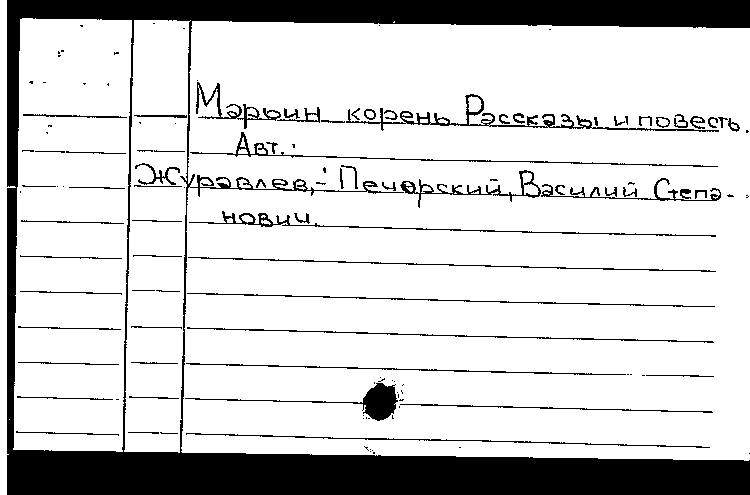 Марьин корень Рассказы и повесть.
Авт.:
Журавлев,-Печорский, Василий Степа-
нович.